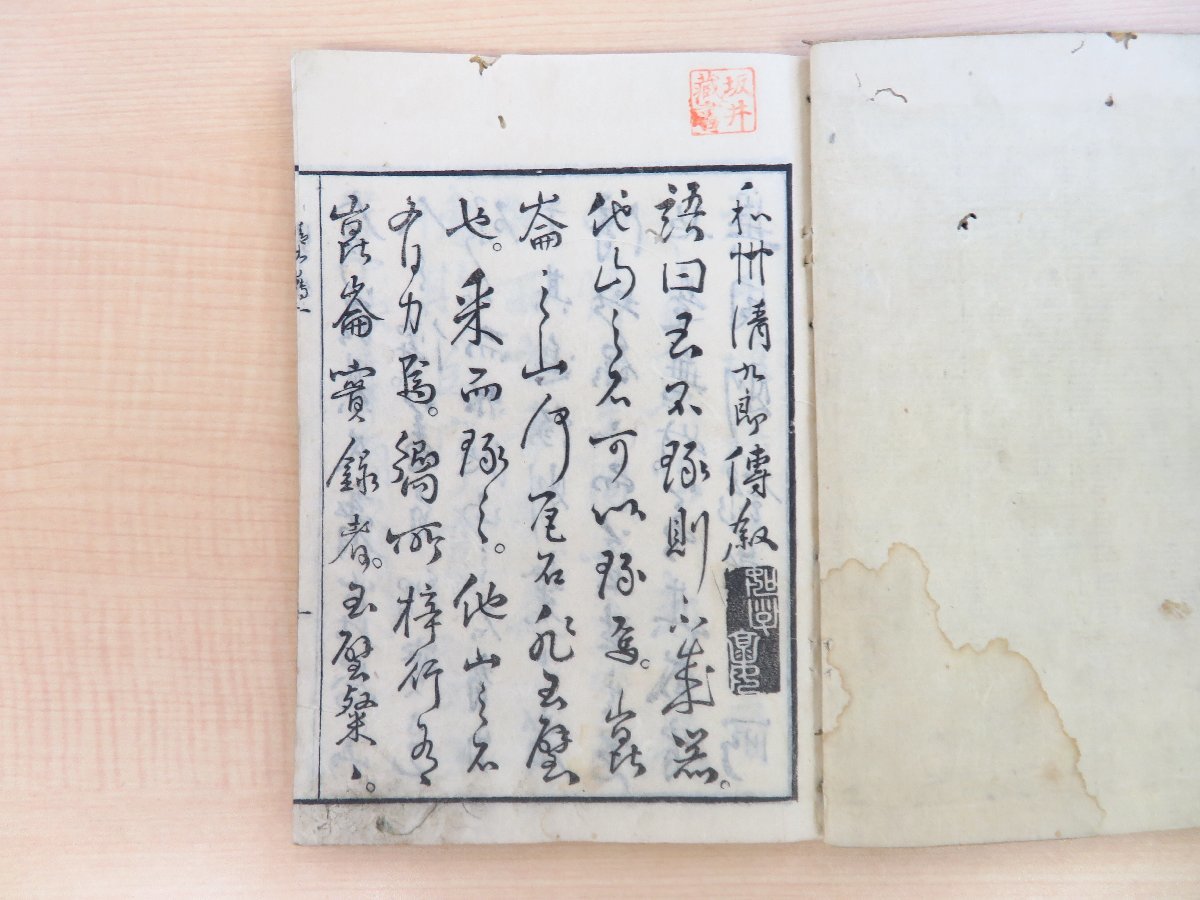 坂井
藏書
和州清九郎傳叙
語曰玉不琢則不成器。
他山之石可以琢焉。崑
崙之山何石非玉璧
也。采而琢之。他山之石
力焉。嚮所梓行有
崑崙實録者。玉璧粲〻。